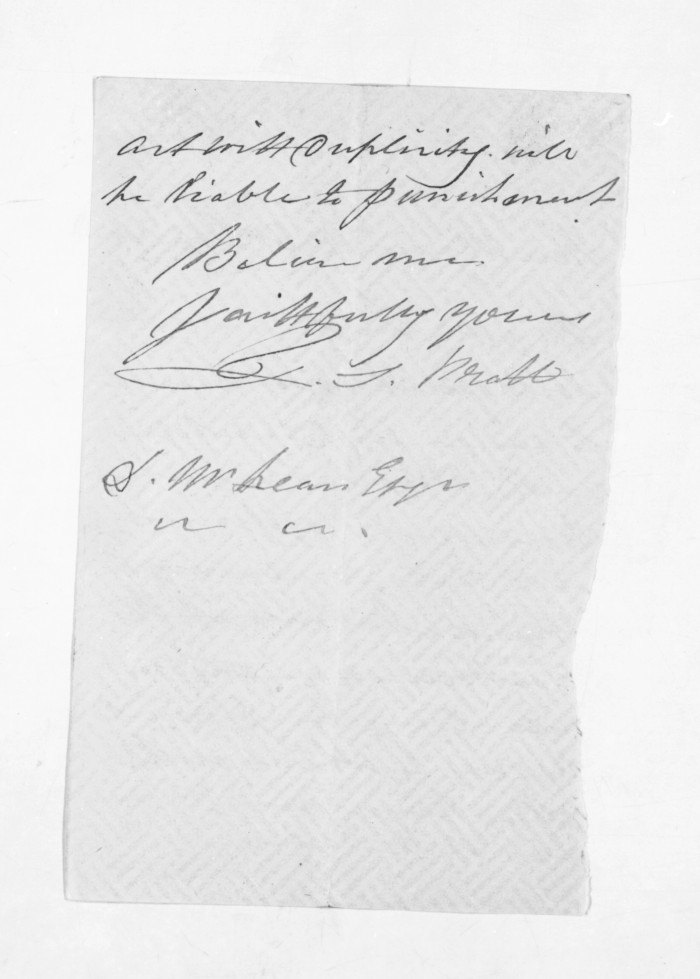 act with Duplicity will
be liable to punishment
Believe me
Faithfully yours
T. S. Pratt
D. McLean Esqr